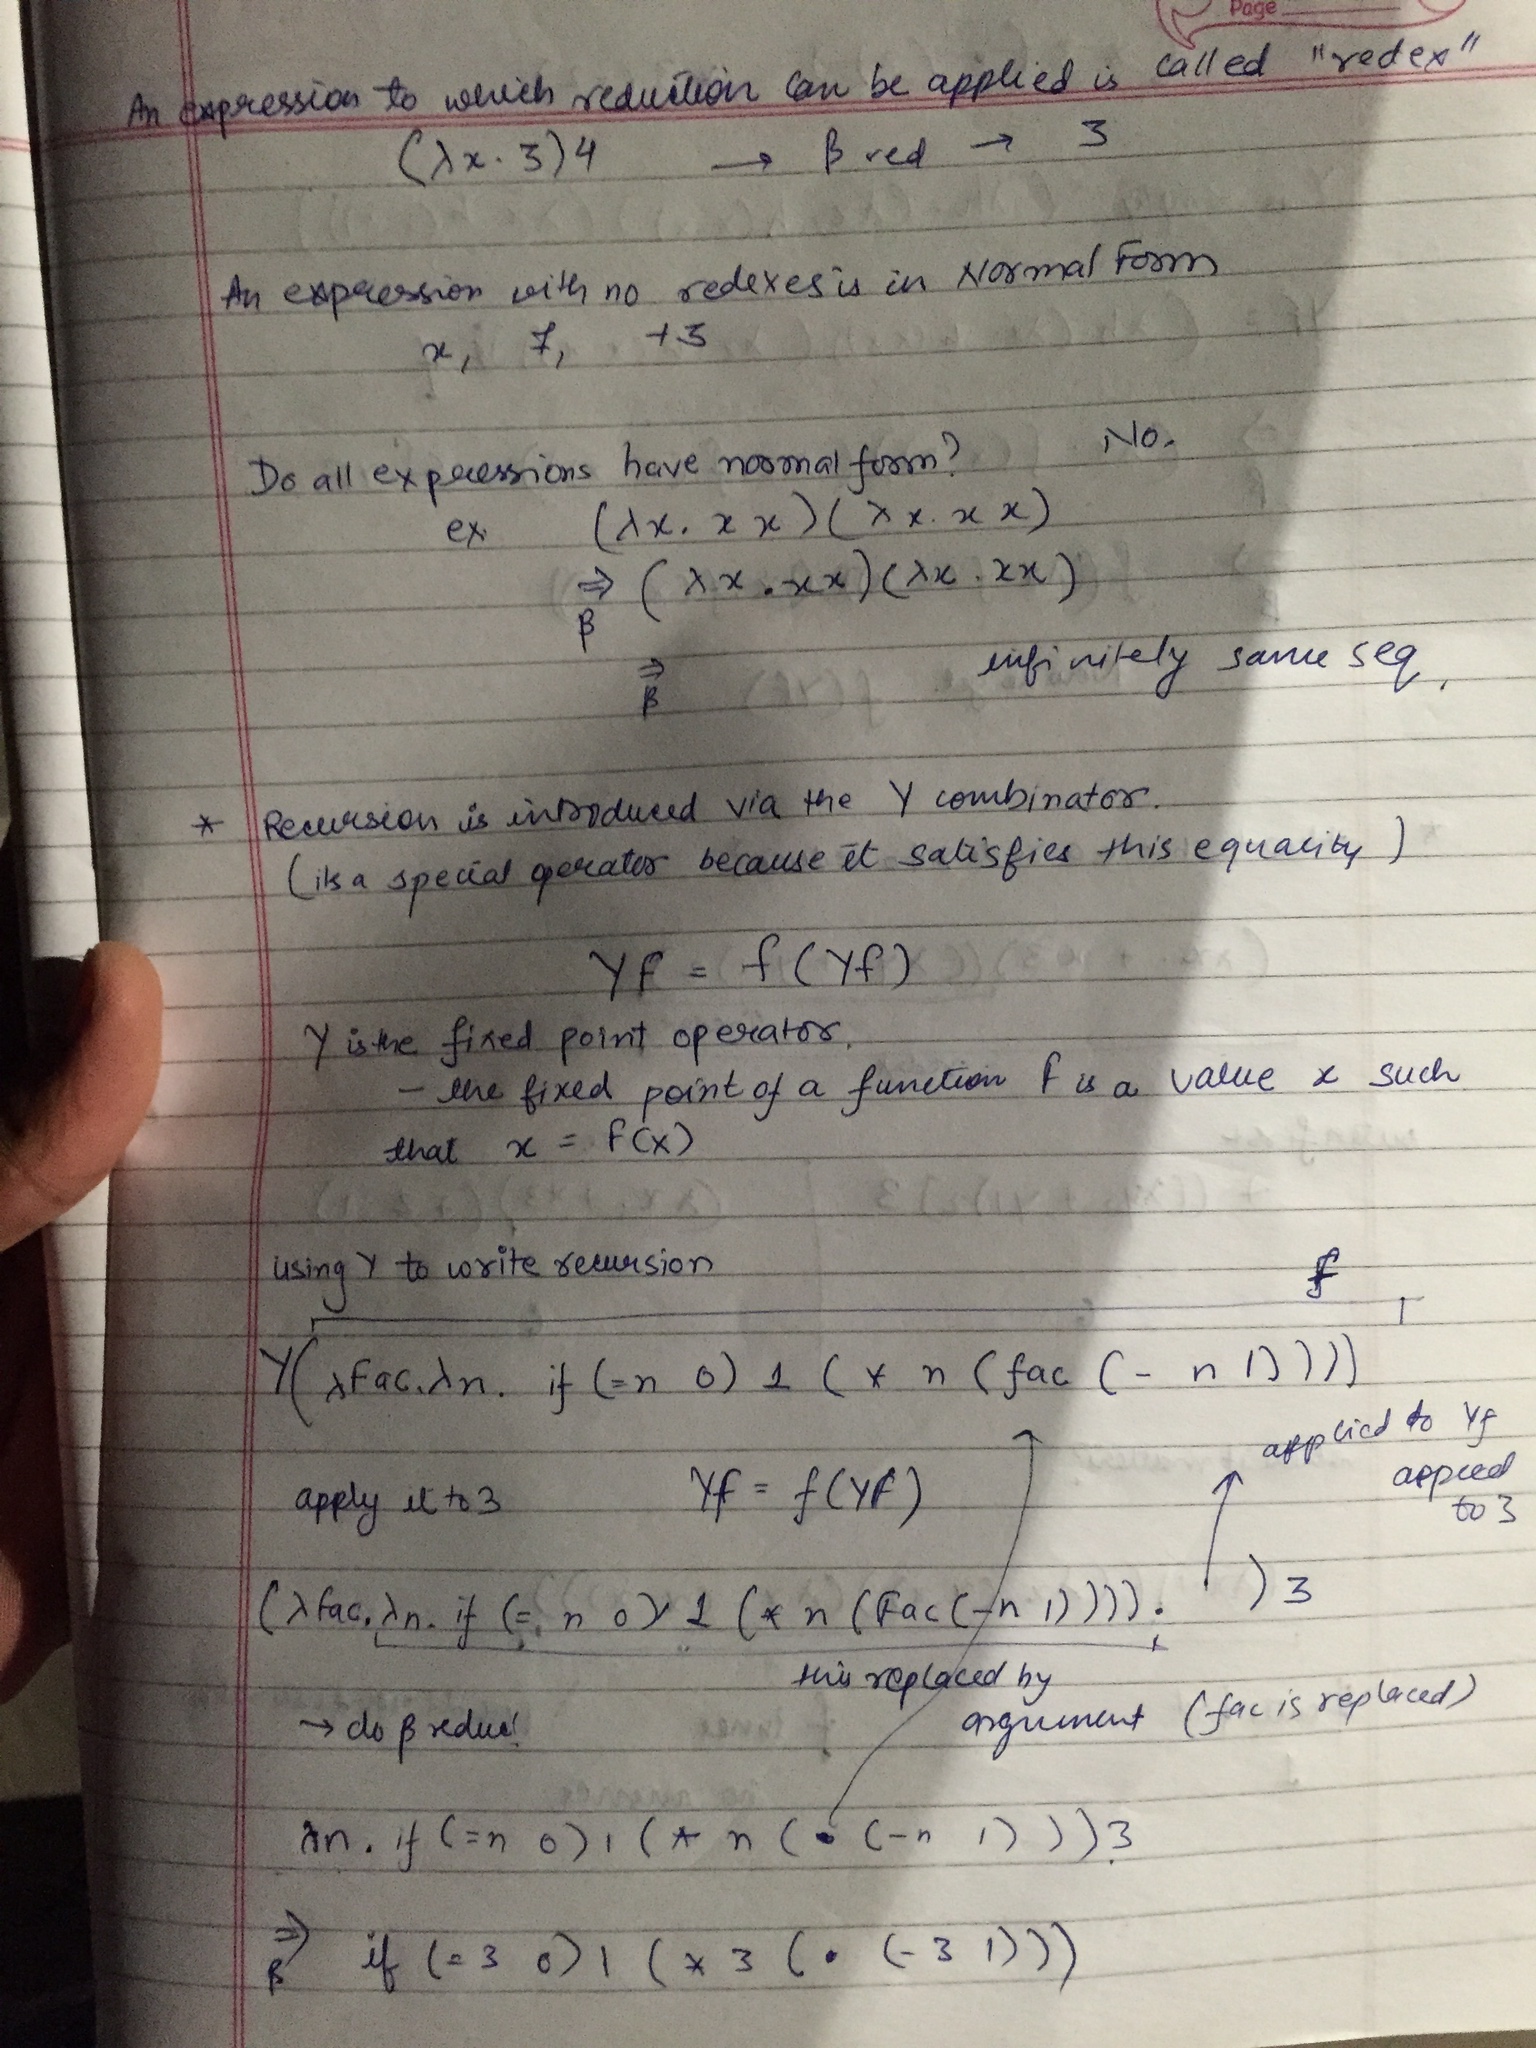 Page
An expression to which reduction can be applied is called "redex"
(λx. 3)4 → β red → 3
An expression with no redexes is in Normal Form
x, 7, +3
Do all expressions have normal form? No.
ex. (λx. x x)(λx. x x)
⇒β (λx. xx)(λx. xx)
⇒β infinitely same seq,
* Recursion is introduced via the Y combinator.
(its a special operator because it satisfies this equality)
Yf = f(Yf)
Y is the fixed point operator.
- the fixed point of a function f is a value x such
that x = f(x)
using Y to write recursion f
Y(λfac.λn. if (=n 0) 1 (* n (fac (- n 1))))
applied to Yf
apply it to 3 Yf = f(Yf) applied
to 3
(λfac.λn. if (= n 0) 1 (* n (Fac(-n 1)))). ) 3
this replaced by
→ do β reduc! argument (fac is replaced)
λn. if (=n 0) 1 (* n (• (-n 1))) 3
⇒β if (=3 0) 1 (* 3 (• (-3 1)))